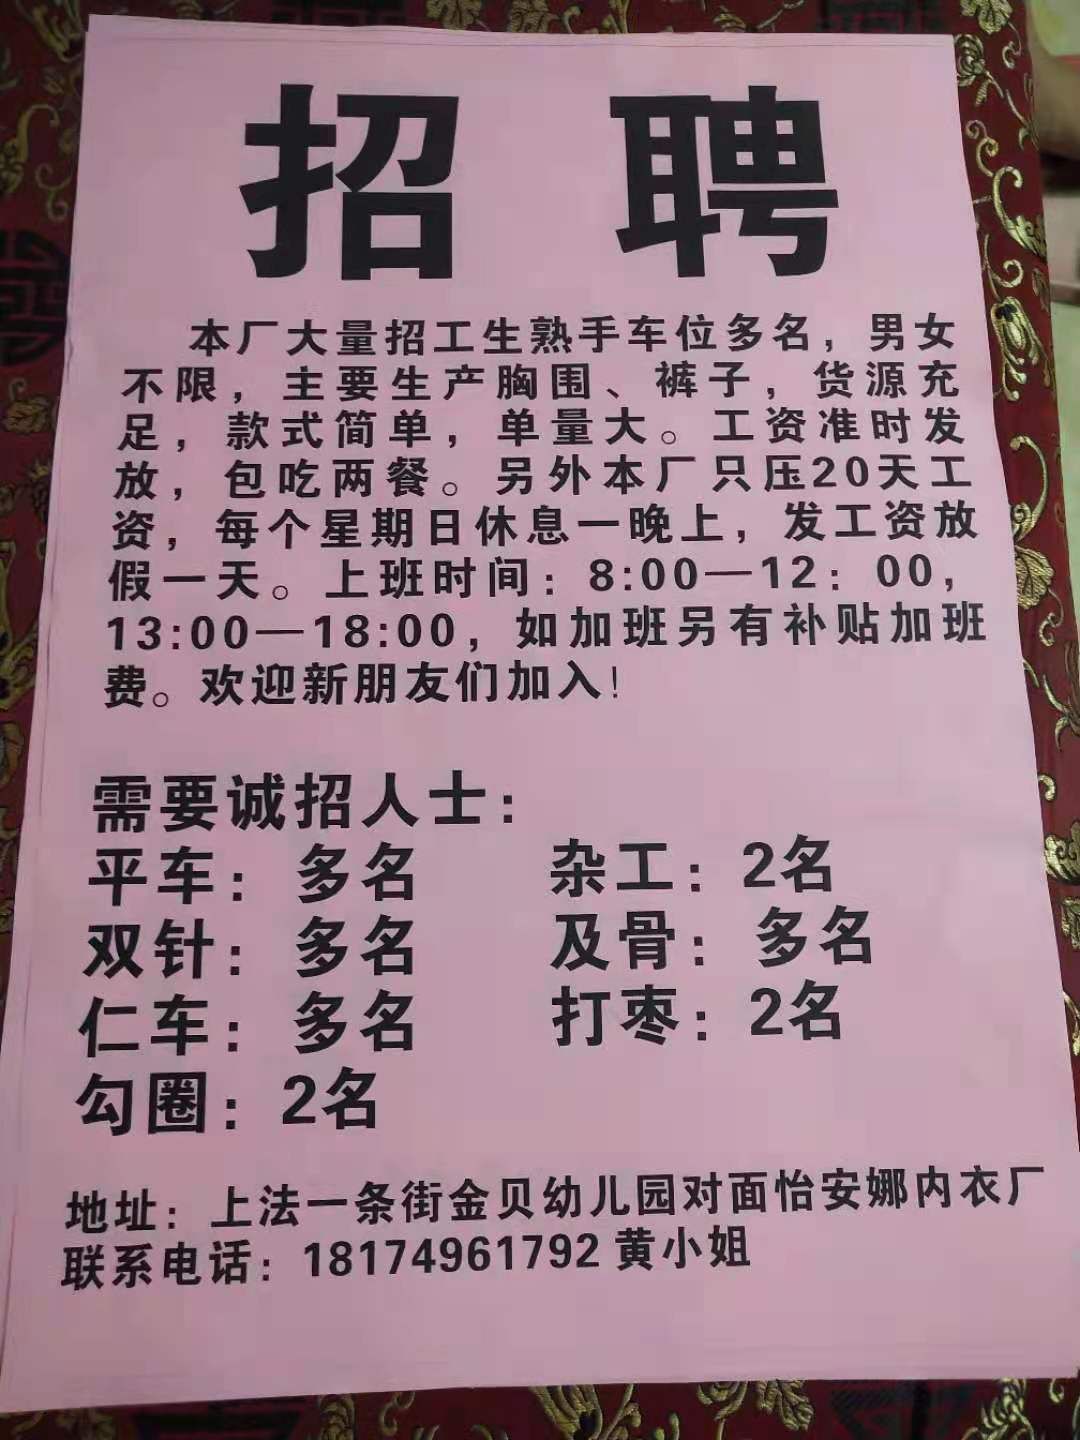 招聘
本厂大量招工生熟手车位多名，男女
不限，主要生产胸围、裤子，货源充
足，款式简单，单量大。工资准时发
放，包吃两餐。另外本厂只压20天工
资，每个星期日休息一晚上，发工资放
假一天。上班时间：8:00—12：00，
13:00—18:00，如加班另有补贴加班
费。欢迎新朋友们加入！
需要诚招人士：
平车：多名 杂工：2名
双针：多名 及骨：多名
仁车：多名 打枣：2名
勾圈：2名
地址：上法一条街金贝幼儿园对面怡安娜内衣厂
联系电话：18174961792 黄小姐